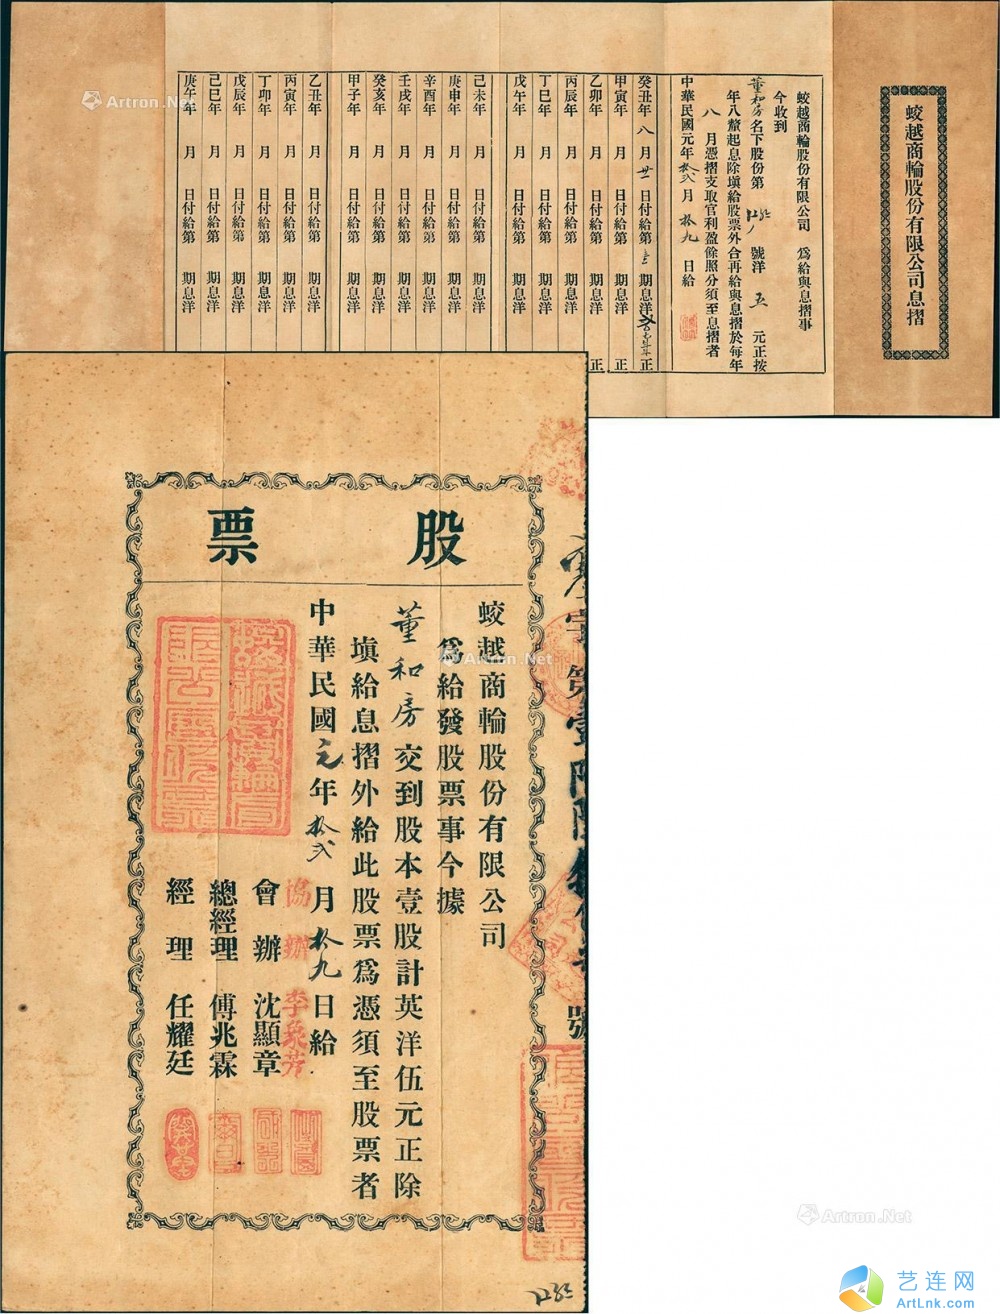 蛟越商輪股份有限公司息摺
蛟越商輪股份有限公司 爲給與息摺事
今收到
董和房名下股份第 號洋 五 元正按
年八釐起息除塡給股票外合再給與息摺於每年
八 月憑摺支取官利盈餘照分須至息摺者
中華民國元年拾弍月 拾九 日給
癸丑年 八 月 廿 日付給第 期息洋 正
甲寅年 月 日付給第 期息洋 正
乙卯年 月 日付給第 期息洋 正
丙辰年 月 日付給第 期息洋
丁巳年 月 日付給第 期息洋
戊午年 月 日付給第 期息洋
己未年 月 日付給第 期息洋
庚申年 月 日付給第 期息洋
辛酉年 月 日付給第 期息洋
壬戌年 月 日付給第 期息洋
癸亥年 月 日付給第 期息洋
甲子年 月 日付給第 期息洋
乙丑年 月 日付給第 期息洋
丙寅年 月 日付給第 期息洋
丁卯年 月 日付給第 期息洋
戊辰年 月 日付給第 期息洋
己巳年 月 日付給第 期息洋
庚午年 月 日付給第 期息洋
股票
蛟越商輪股份有限公司
爲給發股票事今據
董和房交到股本壹股計英洋伍元正除
塡給息摺外給此股票爲憑須至股票者
中華民國元年拾弍月拾九日給
協辦 李象芳
會辦 沈顯章
總經理 傅兆霖
經理 任耀廷
Artron.Net
Artron.Net
Artron.Net
艺连网
ArtLnk.com